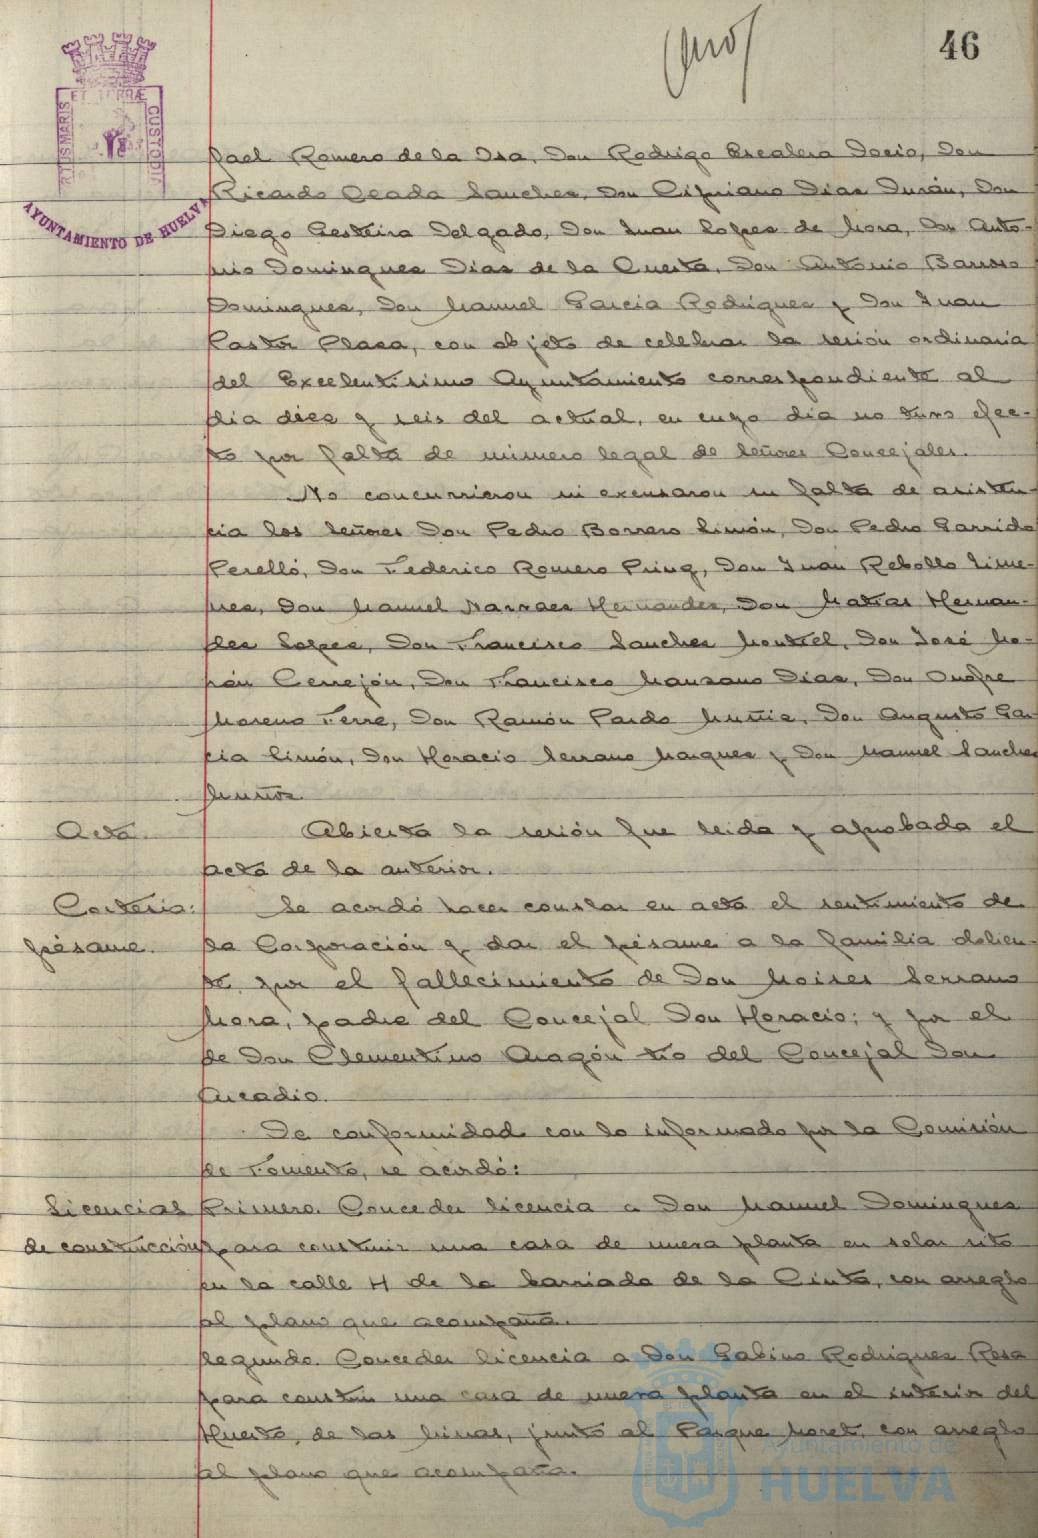 46
ET TERRÆ
PORTUS MARIS
CUSTODIA
AYUNTAMIENTO DE HUELVA
fael Romero de la Osa, Don Rodrigo Escalera Docio, Don
Ricardo Ceada Sanchez, Don Cipriano Diaz Durán, Don
Diego Gesteira Delgado, Don Juan Lopez de Mora, Don Anto-
nio Dominguez Diaz de la Cuesta, Don Antonio Barroso
Dominguez, Don Manuel Garcia Rodriguez y Don Juan
Pastor Plaza, con objeto de celebrar la sesión ordinaria
del Excelentisimo Ayuntamiento correspondiente al
dia diez y seis del actual, en cuyo dia no tuvo efec-
to por falta de número legal de Señores Concejales.
No concurrieron ni excusaron su falta de asisten-
cia los Señores Don Pedro Borrero Limón, Don Pedro Garrido
Perelló, Don Federico Romero Pring, Don Juan Rebollo Jime-
nez, Don Manuel Narvaez Hernandez, Don Matias Hernan-
dez Lopez, Don Francisco Sanchez Montiel, Don José Mo-
rón Cerrejón, Don Francisco Manzano Diaz, Don Onofre
Moreno Ferre, Don Ramón Pardo Muñiz, Don Augusto Gar-
cia Limón, Don Horacio Serrano Marquez y Don Manuel Sanchez
Muñoz.
Acta. Abierta la sesión fue leida y aprobada el
acta de la anterior.
Cortesia: Se acordó hacer constar en acta el sentimiento de
pésame. la Corporación y dar el pésame a la familia dolien-
te, por el fallecimiento de Don Moises Serrano
Mora, padre del Concejal Don Horacio; y por el
de Don Clementino Aragón tio del Concejal Don
Arcadio.
De conformidad con lo informado por la Comisión
de Fomento, se acordó:
Licencias Primero. Conceder licencia a Don Manuel Dominguez
de construcción para construir una casa de nueva planta en solar sito
en la calle H de la barriada de la Cinta, con arreglo
al plano que acompaña.
Segundo. Conceder licencia a Don Gabino Rodriguez Rosa
para constuir una casa de nueva planta en el interior del
Huerto, de las Minas, junto al Parque Moret, con arreglo
al plano que acompaña.
Ayuntamiento de
HUELVA